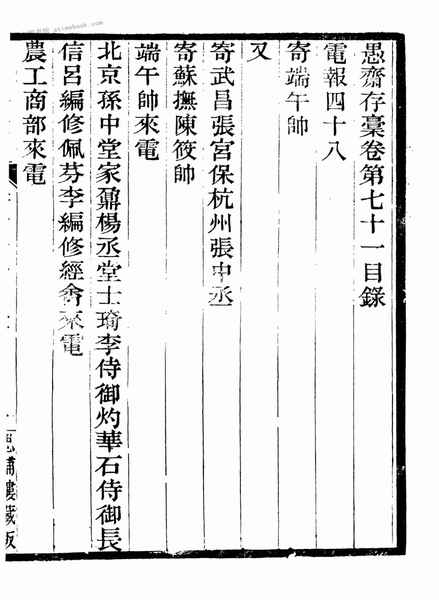 愚齋存藁卷第七十一目錄
電報四十八
寄端午帥
又
寄武昌張宮保杭州張中丞
寄蘇撫陳筱帥
端午帥來電
北京孫中堂家鼐楊丞堂士琦李侍御灼華石侍御長
信呂編修佩芬李編修經畬來電
農工商部來電
思補樓藏版